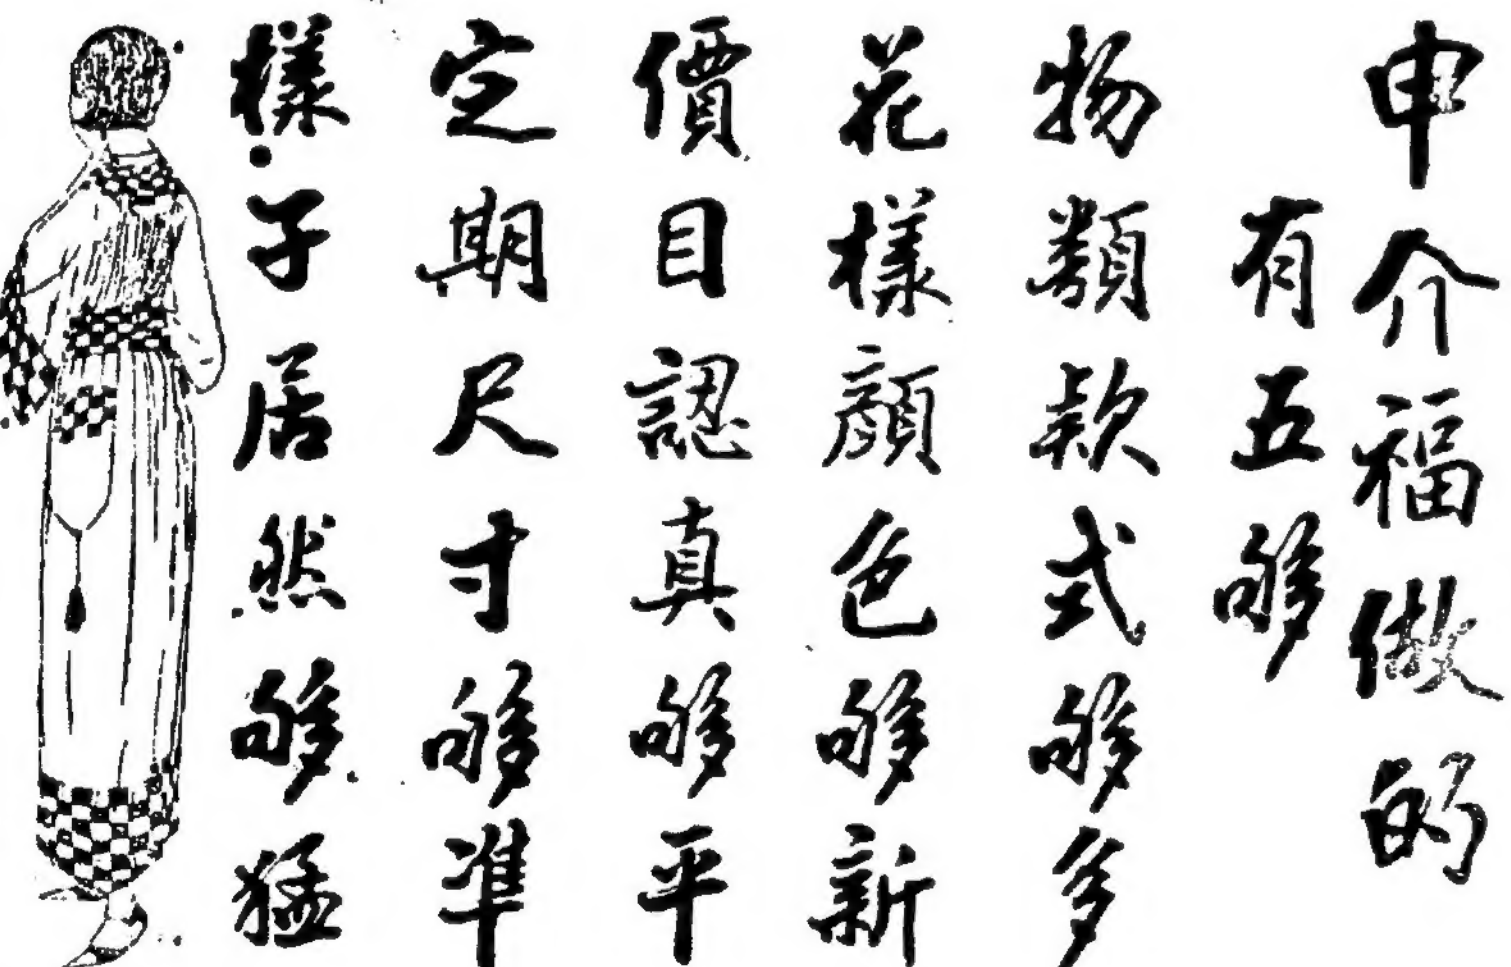 申介福做的
有五够
物類款式够多
花樣顏色够新
價目認真够平
定期尺寸够準
樣子居然够猛